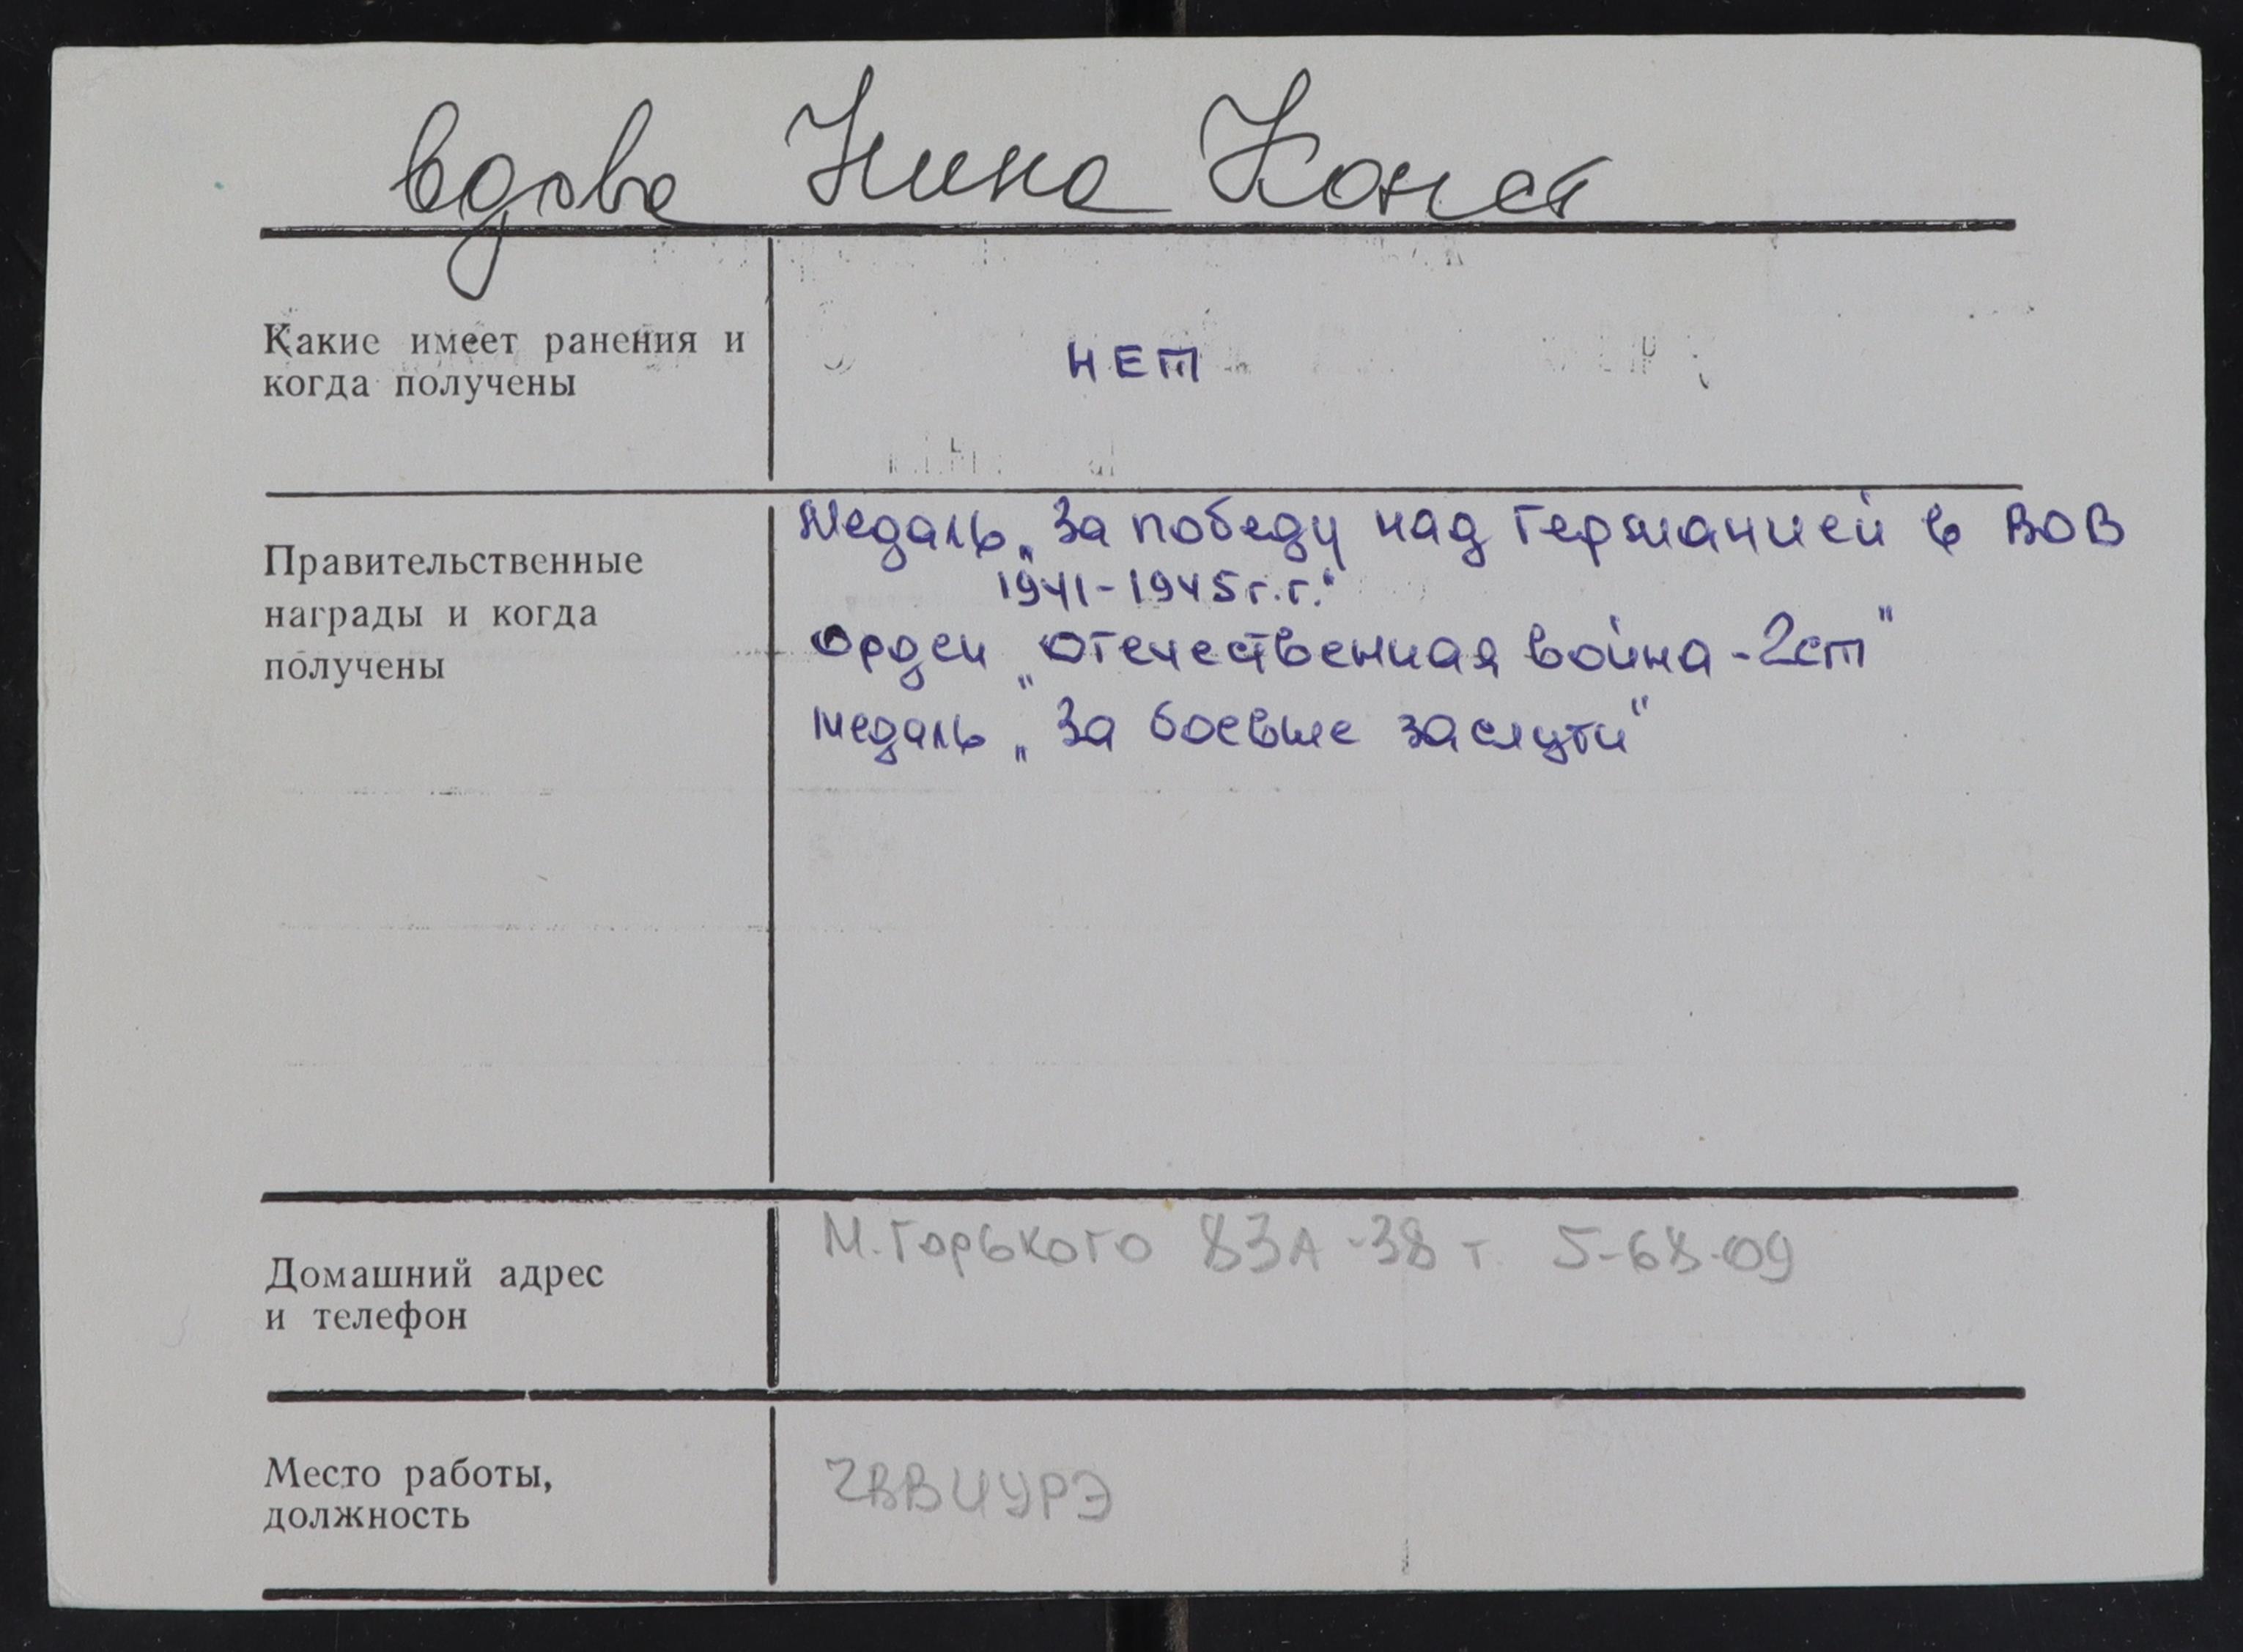 вдова Нина Конст
Какие имеет ранения и
когда получены
НЕТ
Медаль „За победу над Германией в ВОВ
1941-1945 г.г."
Правительственные
награды и когда
получены
Орден „Отечественная война - 2 ст"
Медаль „За боевые заслуги"
М. Горького 83А-38 т. 5-68-09
Домашний адрес
и телефон
Место работы,
должность
ЧВВИУРЭ